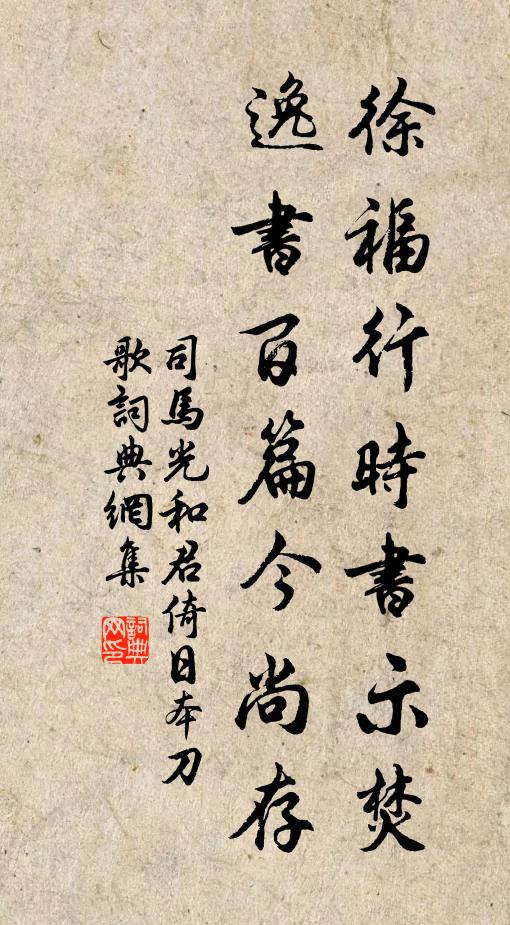 徐福行時書示焚
逸書百篇今尚存
司馬光和君倚日本刀
歌詞典網集
詞典
网印